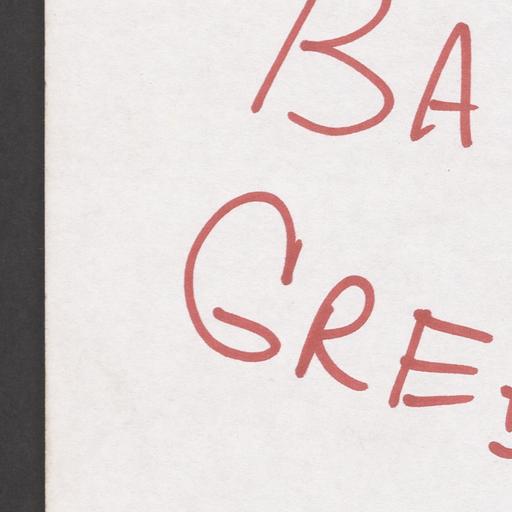 BA
GRE